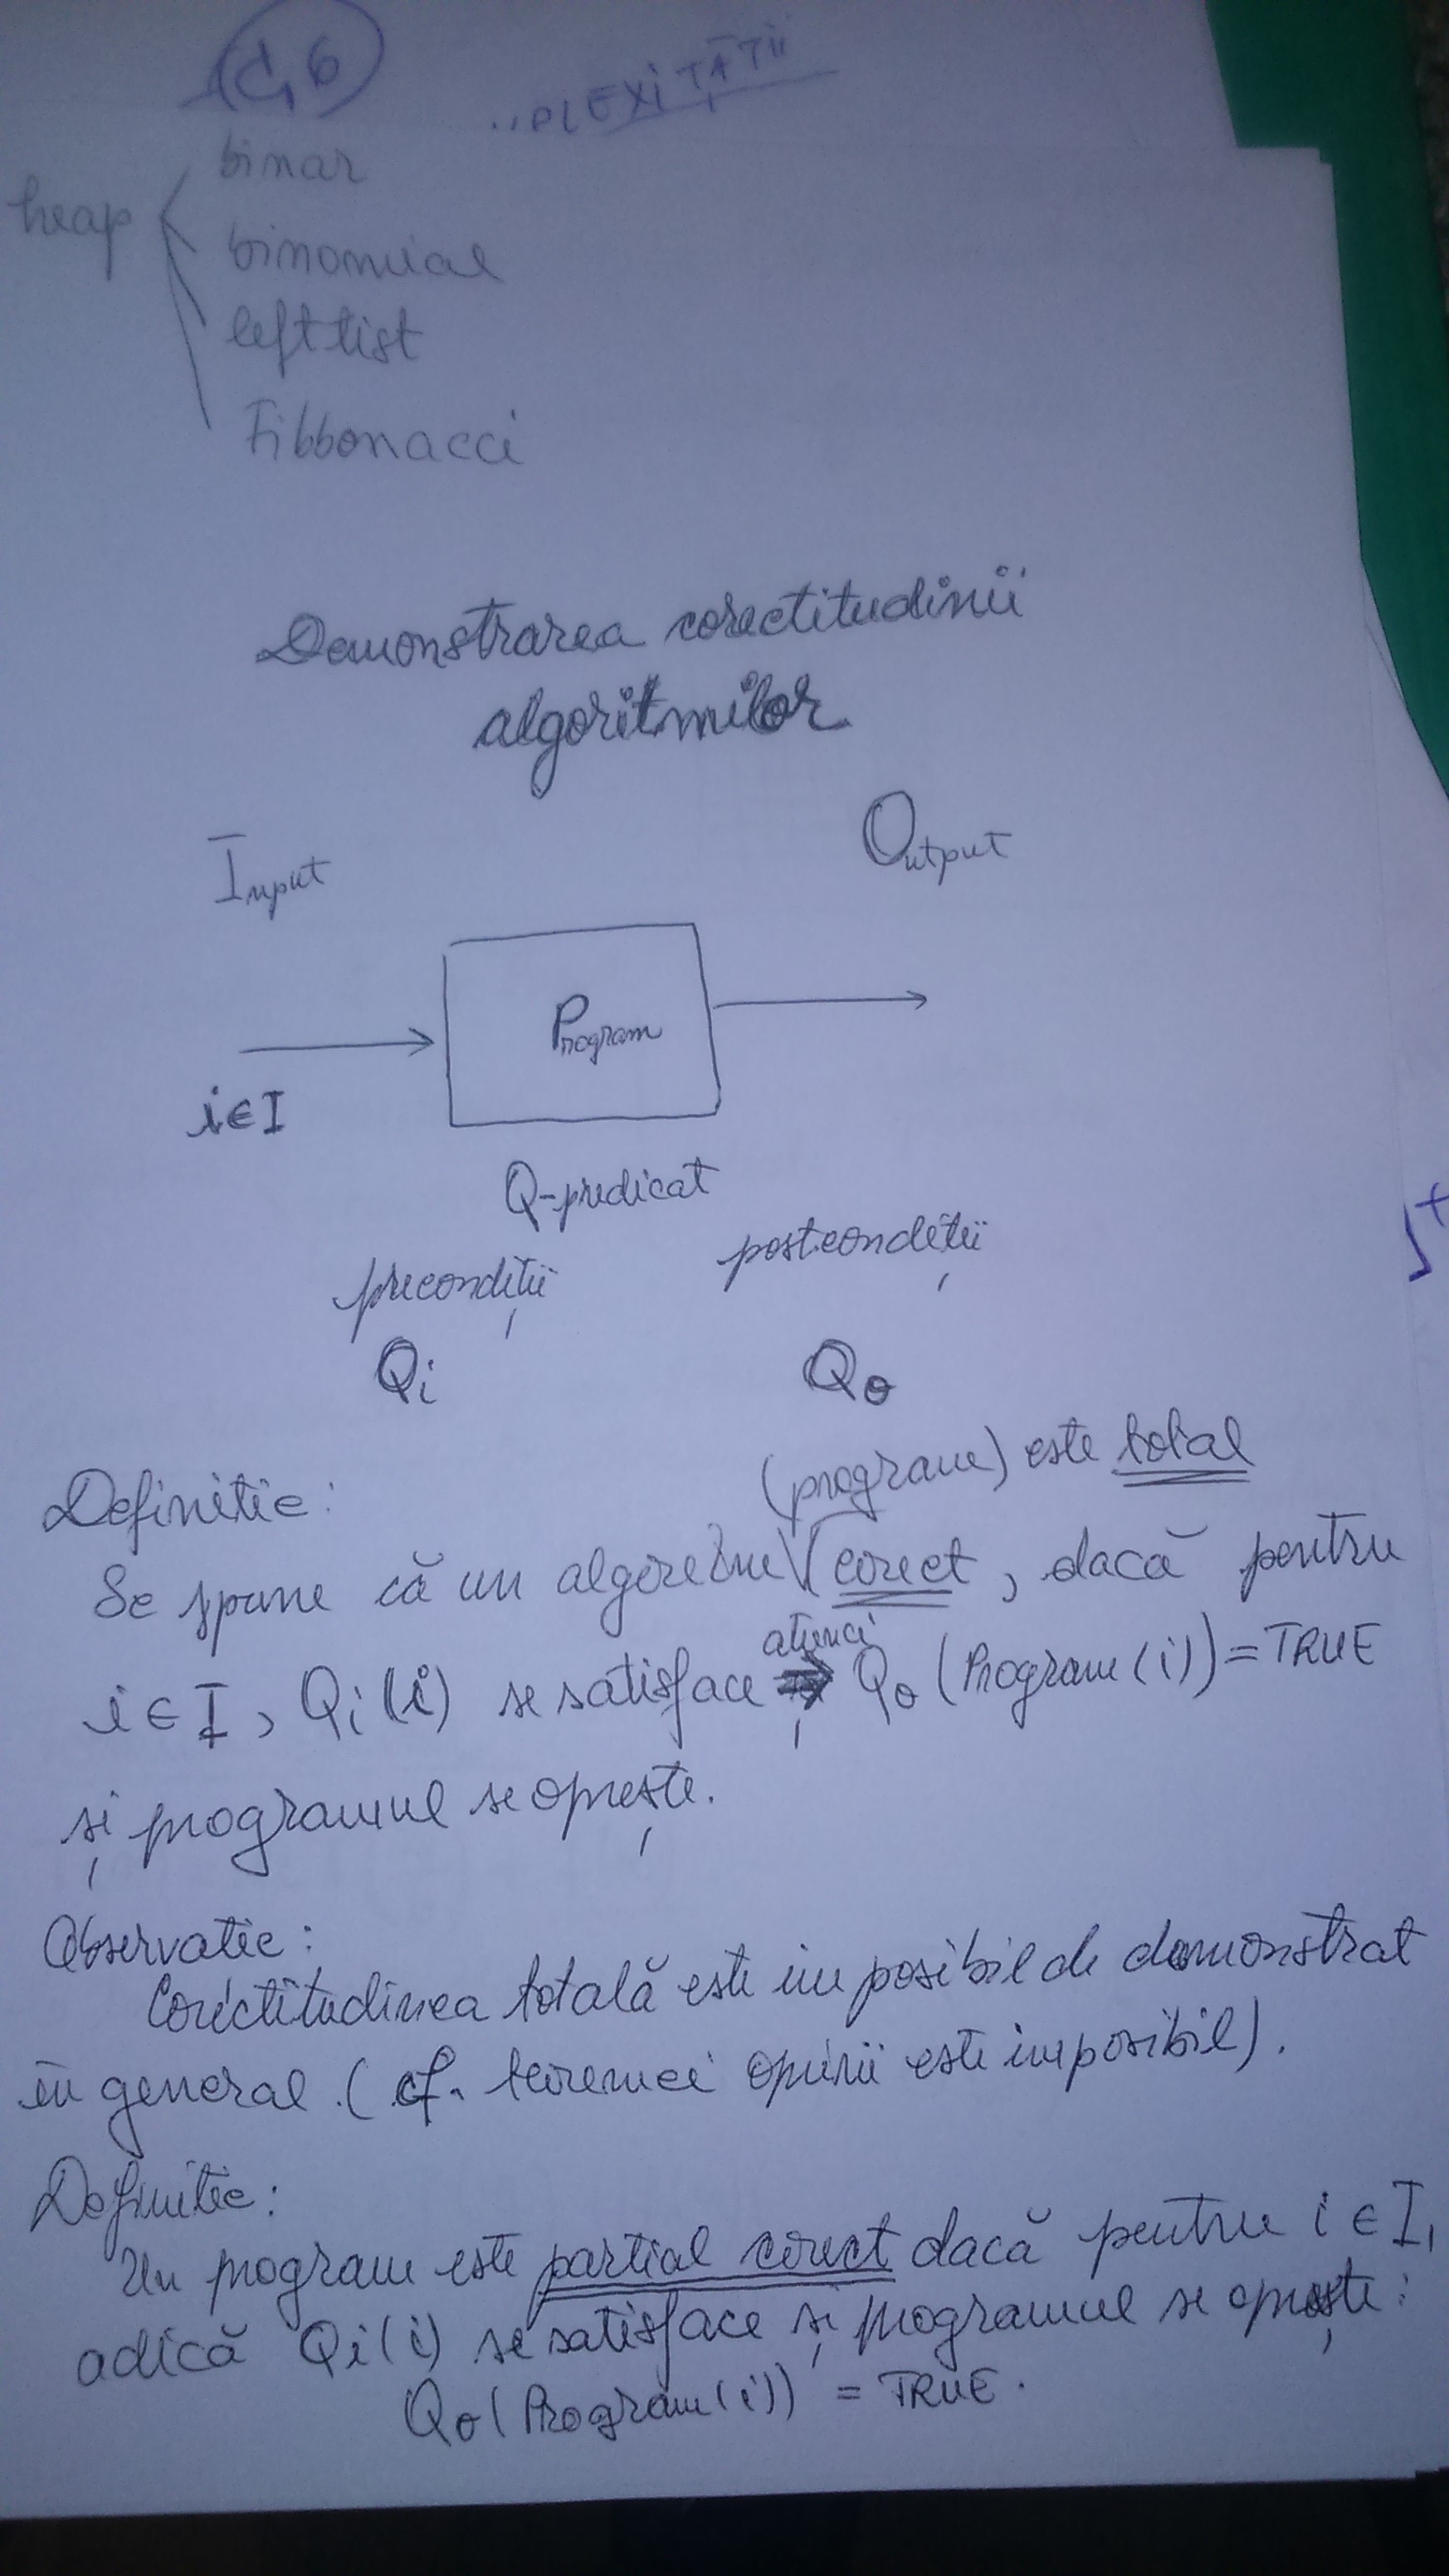 C6
..PLEXITĂȚII
heap
binar
binomial
leftlist
Fibbonacci
Demonstrarea corectitudinii
algoritmilor
Input
Output
Program
i∈I
Q-predicat
precondiții
postcondiții
Qi
Qo
Definitie:
(program) este total
Se spune că un algoritm corect, dacă pentru
i∈I, Qi(i) se satisface atunci Qo(Program(i))=TRUE
și programul se oprește.
Observatie:
Corectitudinea totală este imposibil de demonstrat
în general. (cf. teoremei opririi este imposibil).
Definitie:
Un program este partial corect dacă pentru i∈I,
adică Qi(i) se satisface și programul se oprește:
Qo(Program(i)) = TRUE.